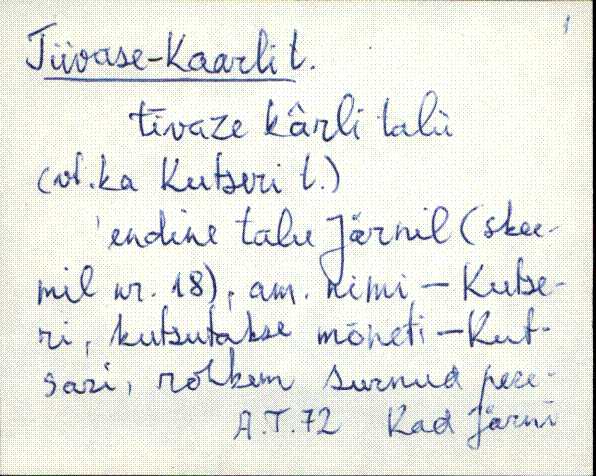 1
Tiivase-Kaarli t.
tīvaze kârli talu
(vt. ka Kutseri t.)
'endine talu Järnil (skee-
mil nr. 18), am. nimi – Kutse-
ri, kutsutakse mõneti – Kut-
sari, rohkem surnud pere-
A.T. 72 Kad Järni